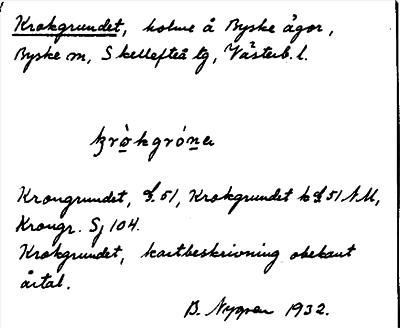 Krokgrundet, holme å Byske ägor,
Byske sn, Skellefteå tg, Västerb. l.
krò̀kgróne
Krongrundet, L 51, Krokgrundet k L 51 NM,
Krongr. Sj 104.
Krokgrundet, kartbeskrivning obekant
årtal.
B. Nygren 1932.